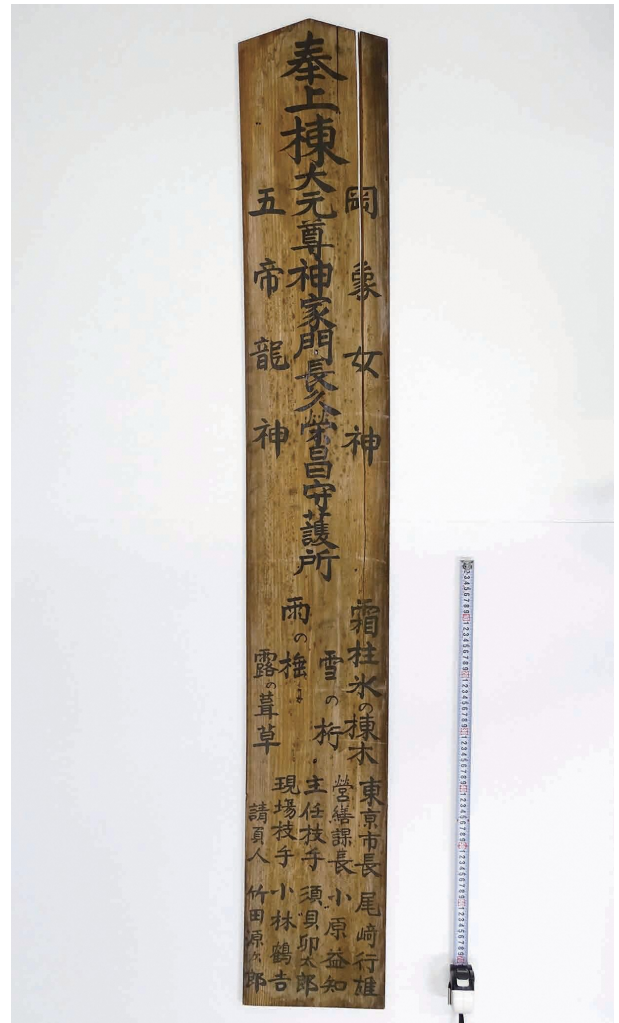 奉上棟大元尊神家門長久榮昌守護所
岡象女神
五帝龍神
霜柱氷の棟木
雪の桁
雨の棰に
露の葺草
東京市長 尾崎行雄
営繕課長 小原益知
主任技手 須貝卯太郎
現場技手 小林鶴吉
請負人 竹田源次郎